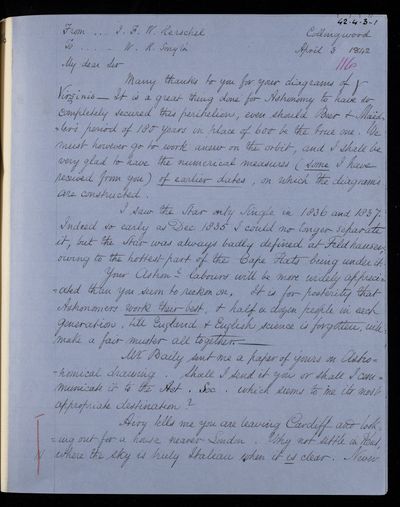 42-4-3-1
From ... J. F. W. Herschel Collingwood
To ... W. H. Smyth April 3 1842
116
My dear Sir
Many thanks to you for your diagrams of γ
Virginis — It is a great thing done for Astronomy to have so
completely secured this perihelion, even should Beer & Mäd-
=ler's period of 180 years in place of 600 be the true one. We
must however go to work anew on the orbit, and I shall be
very glad to have the numerical measures (some I have
received from you) of earlier dates, on which the diagrams
are constructed.
I saw the Star only Single in 1836 and 1837.
Indeed so early as Dec 1835 I could no longer separate
it, but the Star was always badly defined at Feldhausen,
owing to the hottest part of the Cape Flats being under it.
Your Astronl. labours will be more widely appreci-
=ated than you seem to reckon on. It is for posterity that
Astronomers work their best, & half a dozen people in each
generation, till England & English science is forgotten, will
make a fair muster all together —
Mr Baily sent me a paper of yours on Astro-
=nomical drawing. Shall I send it you or shall I com-
=municate it to the Ast. Soc. which seems to me its most
appropriate destination?
Airy tells me you are leaving Cardiff and look-
=ing out for a house nearer London. Why not settle in
where the sky is truly Italian when it is clear.